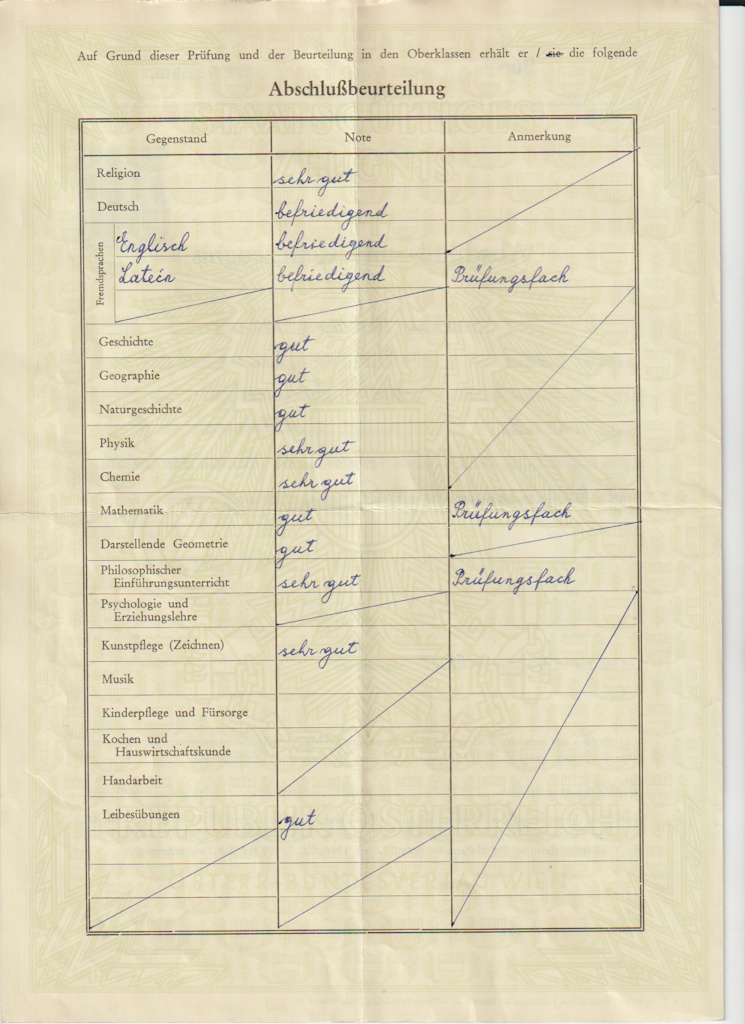 Auf Grund dieser Prüfung und der Beurteilung in den Oberklassen erhält er / sie die folgende
Abschlußbeurteilung
Gegenstand Note Anmerkung
Religion sehr gut
Deutsch befriedigend
Fremdsprachen
Englisch befriedigend
Latein befriedigend Prüfungsfach
Geschichte gut
Geographie gut
Naturgeschichte gut
Physik sehr gut
Chemie sehr gut
Mathematik gut Prüfungsfach
Darstellende Geometrie gut
Philosophischer
Einführungsunterricht sehr gut Prüfungsfach
Psychologie und
Erziehungslehre
Kunstpflege (Zeichnen) sehr gut
Musik
Kinderpflege und Fürsorge
Kochen und
Hauswirtschaftskunde
Handarbeit
Leibesübungen gut